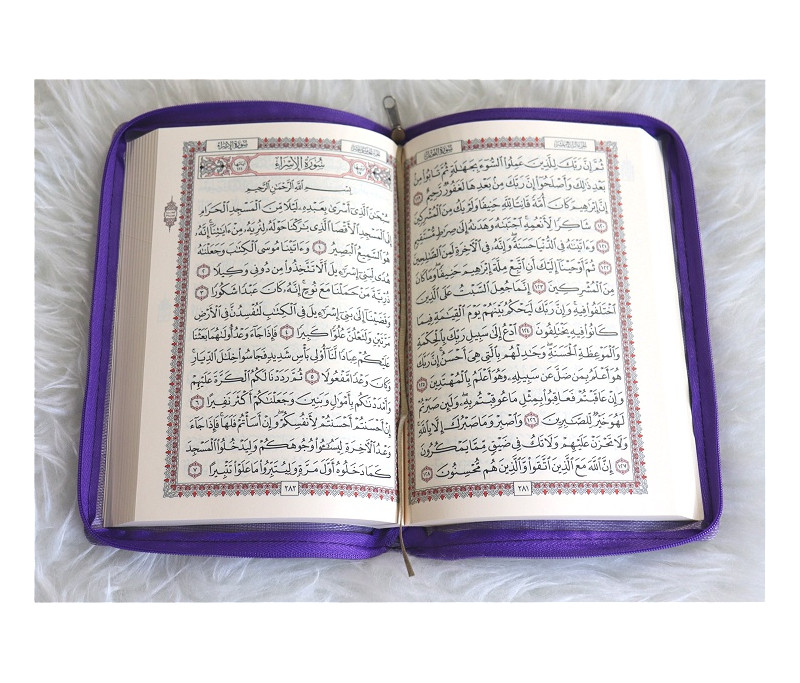 سورة النحل
ثُمَّ إِنَّ رَبَّكَ لِلَّذِينَ عَمِلُوا۟ ٱلسُّوٓءَ بِجَهَـٰلَةٍ ثُمَّ تَابُوا۟ مِنۢ
بَعْدِ ذَٰلِكَ وَأَصْلَحُوٓا۟ إِنَّ رَبَّكَ مِنۢ بَعْدِهَا لَغَفُورٌ رَّحِيمٌ ١١٩
إِنَّ إِبْرَٰهِيمَ كَانَ أُمَّةً قَانِتًا لِّلَّهِ حَنِيفًا وَلَمْ يَكُ مِنَ ٱلْمُشْرِكِينَ ١٢٠
شَاكِرًا لِّأَنْعُمِهِ ۚ ٱجْتَبَىٰهُ وَهَدَىٰهُ إِلَىٰ صِرَٰطٍ مُّسْتَقِيمٍ ١٢١
وَءَاتَيْنَـٰهُ فِى ٱلدُّنْيَا حَسَنَةً ۖ وَإِنَّهُۥ فِى ٱلْـَٔاخِرَةِ لَمِنَ ٱلصَّـٰلِحِينَ ١٢٢
ثُمَّ أَوْحَيْنَآ إِلَيْكَ أَنِ ٱتَّبِعْ مِلَّةَ إِبْرَٰهِيمَ حَنِيفًا ۖ وَمَا كَانَ
مِنَ ٱلْمُشْرِكِينَ ١٢٣ إِنَّمَا جُعِلَ ٱلسَّبْتُ عَلَى ٱلَّذِينَ
ٱخْتَلَفُوا۟ فِيهِ ۚ وَإِنَّ رَبَّكَ لَيَحْكُمُ بَيْنَهُمْ يَوْمَ ٱلْقِيَـٰمَةِ فِيمَا
كَانُوا۟ فِيهِ يَخْتَلِفُونَ ١٢٤ ٱدْعُ إِلَىٰ سَبِيلِ رَبِّكَ بِٱلْحِكْمَةِ
وَٱلْمَوْعِظَةِ ٱلْحَسَنَةِ ۖ وَجَـٰدِلْهُم بِٱلَّتِى هِىَ أَحْسَنُ ۚ إِنَّ رَبَّكَ
هُوَ أَعْلَمُ بِمَن ضَلَّ عَن سَبِيلِهِۦ ۖ وَهُوَ أَعْلَمُ بِٱلْمُهْتَدِينَ ١٢٥
وَإِنْ عَاقَبْتُمْ فَعَاقِبُوا۟ بِمِثْلِ مَا عُوقِبْتُم بِهِۦ ۖ وَلَئِن صَبَرْتُمْ
لَهُوَ خَيْرٌ لِّلصَّـٰبِرِينَ ١٢٦ وَٱصْبِرْ وَمَا صَبْرُكَ إِلَّا بِٱللَّهِ ۚ
وَلَا تَحْزَنْ عَلَيْهِمْ وَلَا تَكُ فِى ضَيْقٍ مِّمَّا يَمْكُرُونَ
١٢٧ إِنَّ ٱللَّهَ مَعَ ٱلَّذِينَ ٱتَّقَوا۟ وَّٱلَّذِينَ هُم مُّحْسِنُونَ ١٢٨
٢٨١
سورة الإسراء
سُورَةُ الإِسْرَاءِ
بِسْمِ ٱللَّهِ ٱلرَّحْمَـٰنِ ٱلرَّحِيمِ
سُبْحَـٰنَ ٱلَّذِىٓ أَسْرَىٰ بِعَبْدِهِۦ لَيْلًا مِّنَ ٱلْمَسْجِدِ ٱلْحَرَامِ
إِلَى ٱلْمَسْجِدِ ٱلْأَقْصَا ٱلَّذِى بَـٰرَكْنَا حَوْلَهُۥ لِنُرِيَهُۥ مِنْ ءَايَـٰتِنَآ ۚ إِنَّهُۥ
هُوَ ٱلسَّمِيعُ ٱلْبَصِيرُ ١ وَءَاتَيْنَا مُوسَى ٱلْكِتَـٰبَ وَجَعَلْنَـٰهُ
هُدًى لِّبَنِىٓ إِسْرَٰٓءِيلَ أَلَّا تَتَّخِذُوا۟ مِن دُونِى وَكِيلًا ٢
ذُرِّيَّةَ مَنْ حَمَلْنَا مَعَ نُوحٍ ۚ إِنَّهُۥ كَانَ عَبْدًا شَكُورًا ٣
وَقَضَيْنَآ إِلَىٰ بَنِىٓ إِسْرَٰٓءِيلَ فِى ٱلْكِتَـٰبِ لَتُفْسِدُنَّ فِى ٱلْأَرْضِ
مَرَّتَيْنِ وَلَتَعْلُنَّ عُلُوًّا كَبِيرًا ٤ فَإِذَا جَآءَ وَعْدُ أُولَىٰهُمَا بَعَثْنَا
عَلَيْكُمْ عِبَادًا لَّنَآ أُو۟لِى بَأْسٍ شَدِيدٍ فَجَاسُوا۟ خِلَـٰلَ ٱلدِّيَارِ ۚ
وَكَانَ وَعْدًا مَّفْعُولًا ٥ ثُمَّ رَدَدْنَا لَكُمُ ٱلْكَرَّةَ عَلَيْهِمْ
وَأَمْدَدْنَـٰكُم بِأَمْوَٰلٍ وَبَنِينَ وَجَعَلْنَـٰكُمْ أَكْثَرَ نَفِيرًا ٦
إِنْ أَحْسَنتُمْ أَحْسَنتُمْ لِأَنفُسِكُمْ ۖ وَإِنْ أَسَأْتُمْ فَلَهَا ۚ فَإِذَا جَآءَ
وَعْدُ ٱلْـَٔاخِرَةِ لِيَسُـۥٓـُٔوا۟ وُجُوهَكُمْ وَلِيَدْخُلُوا۟ ٱلْمَسْجِدَ
كَمَا دَخَلُوهُ أَوَّلَ مَرَّةٍ وَلِيُتَبِّرُوا۟ مَا عَلَوْا۟ تَتْبِيرًا ٧
٢٨٢